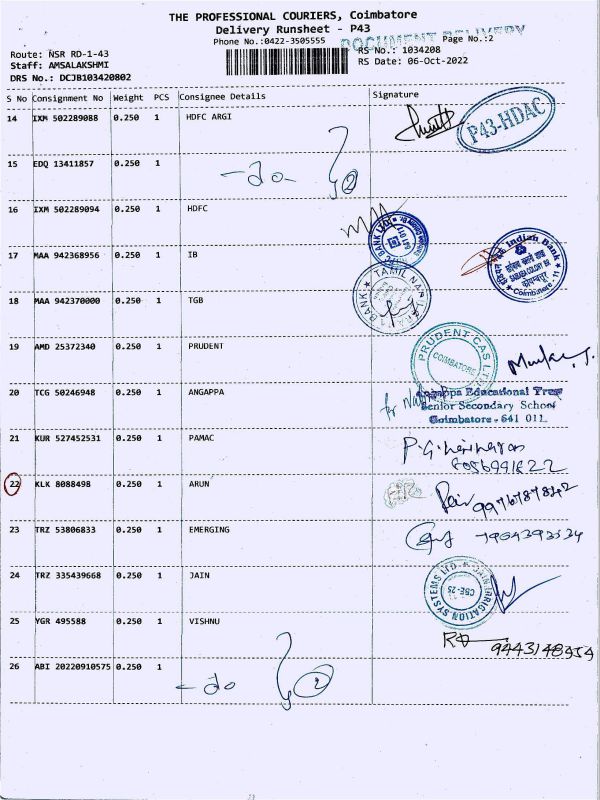 THE PROFESSIONAL COURIERS, Coimbatore
Delivery Runsheet - P43
DOCUMENT DELIVERY
Phone No.:0422-3505555
Page No.:2
Route: NSR RD-1-43
RS No.: 1034208
Staff: AMSALAKSHMI
RS Date: 06-Oct-2022
DRS No.: DCJB103420802
S No Consignment No Weight PCS Consignee Details Signature
14 IXM 502289088 0.250 1 HDFC ARGI
P43-HDAC
15 EDQ 13411857 0.250 1 -do- 2
16 IXM 502289094 0.250 1 HDFC
BANK LTD
641 011
17 MAA 942368956 0.250 1 IB
Indian Bank
Coimbatore 11
18 MAA 942370000 0.250 1 TGB
TAMIL NADU
BANK
19 AMD 25372340 0.250 1 PRUDENT
PRUDENT GAS LTD
COIMBATORE
20 TCG 50246948 0.250 1 ANGAPPA
for
Angappa Educational Trust
Senior Secondary School
Coimbatore - 641 011.
21 KUR 527452531 0.250 1 PAMAC
8056991622
22 KLK 8088498 0.250 1 ARUN
9976787842
23 TRZ 53806833 0.250 1 EMERGING
24 TRZ 335439668 0.250 1 JAIN
JAIN IRRIGATION SYSTEMS LTD
CBE-25
25 YGR 495588 0.250 1 VISHNU
26 ABI 20220910575 0.250 1 -do 2